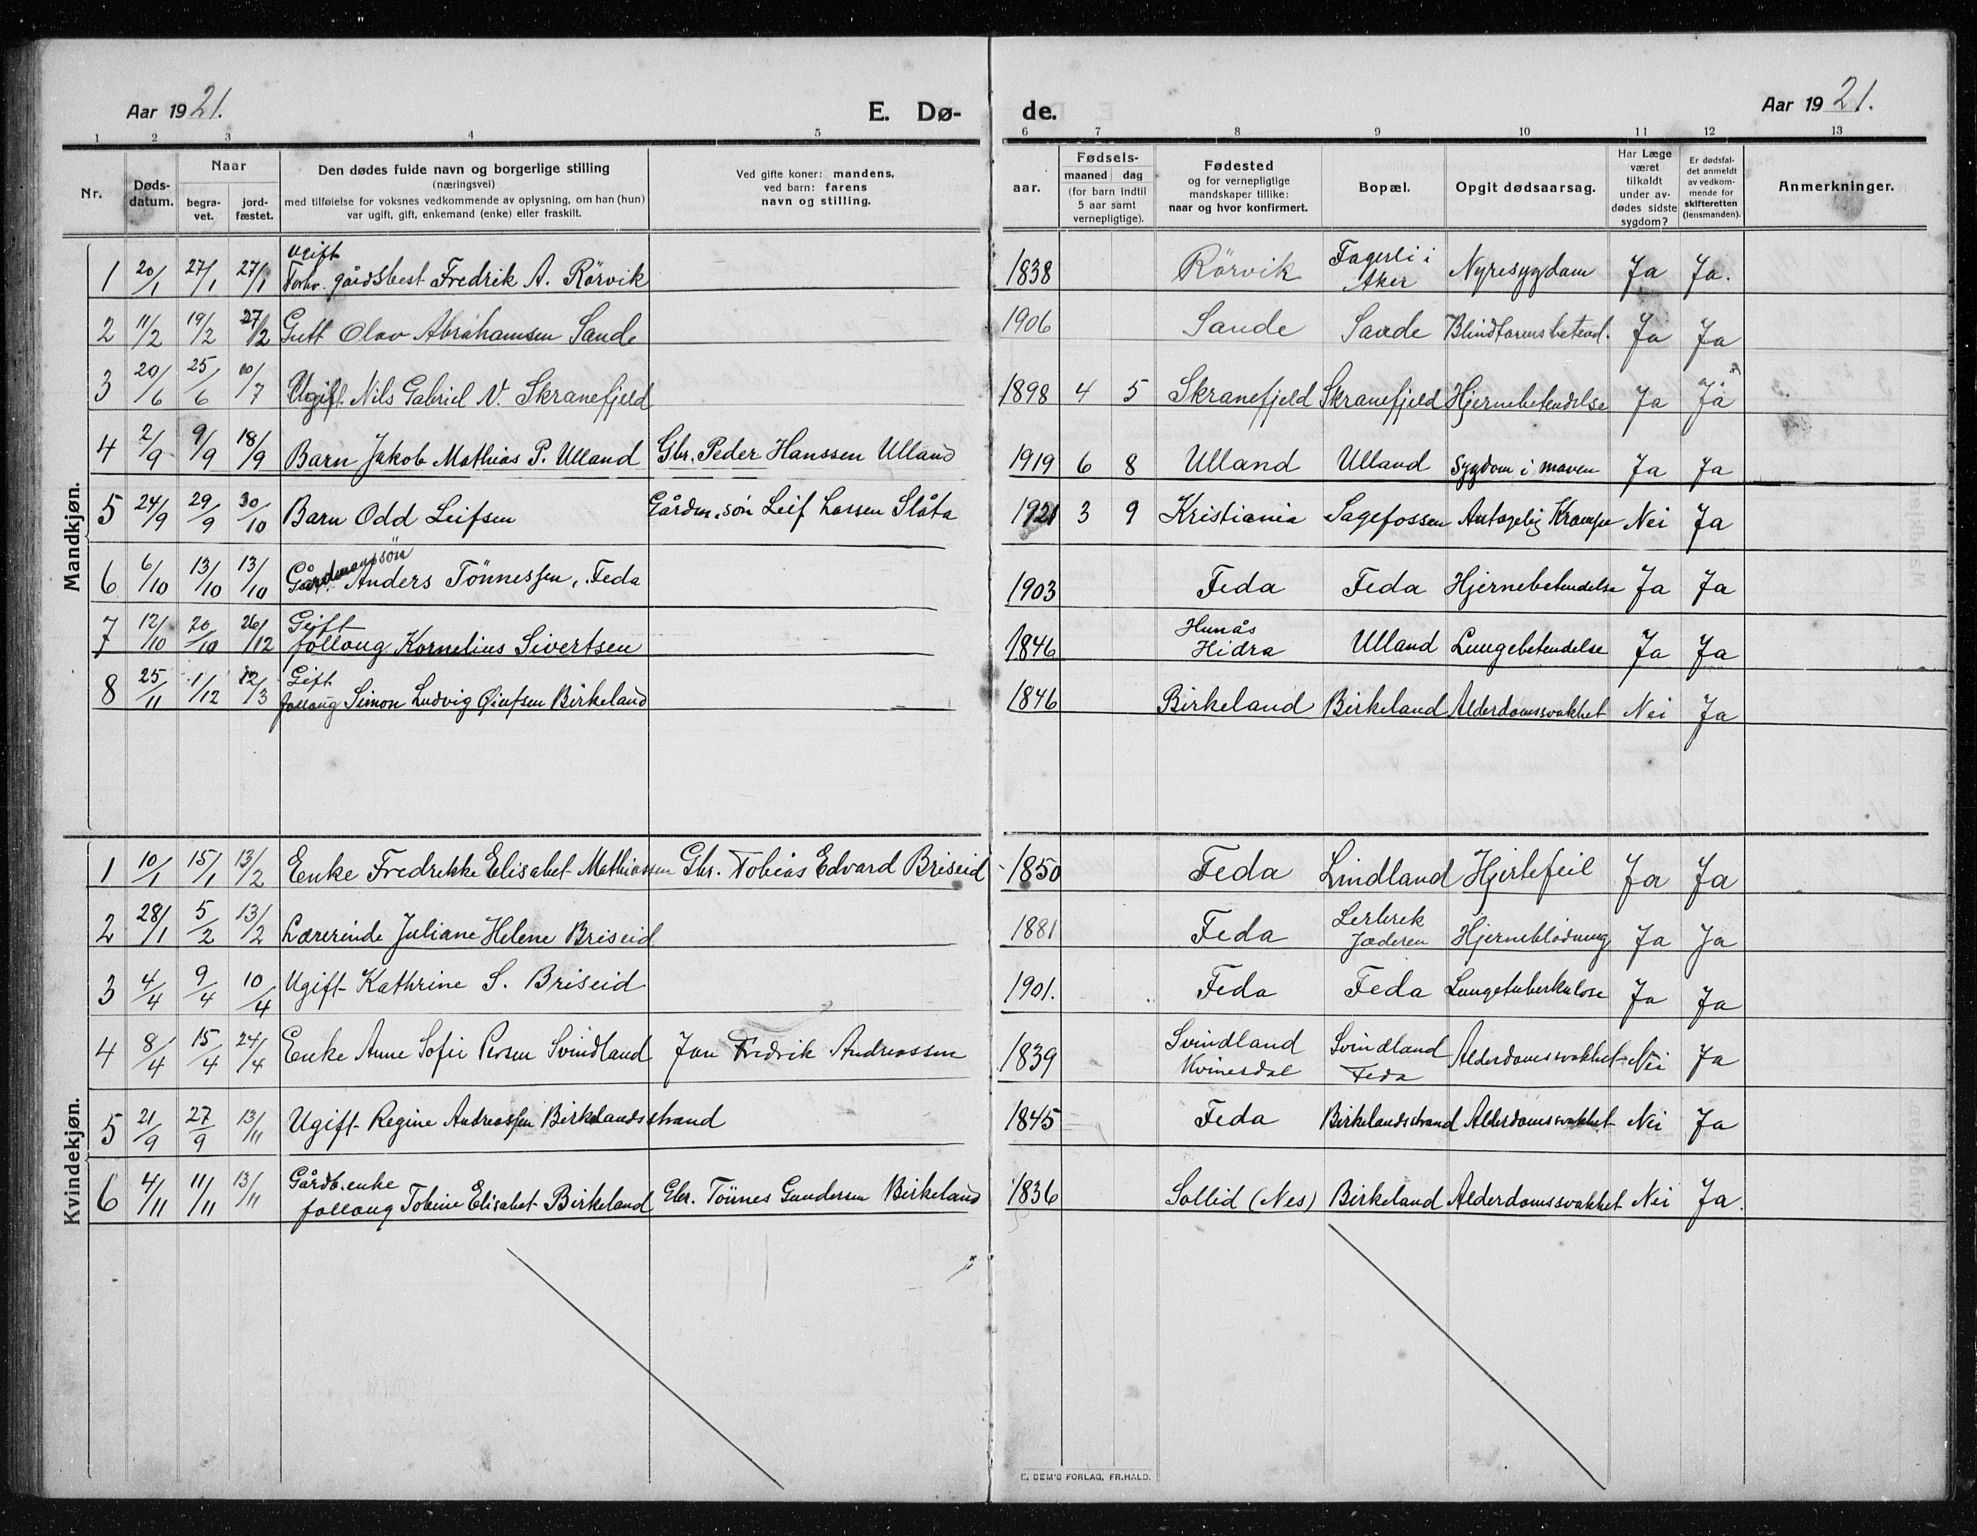 Aar 1921. E. Dø- de. Aar 1921.
1 2 3 4 5 6 7 8 9 10 11 12 13
Nr. Døds-datum. Naar begra-vet. jord-fæstet. Den dødes fulde navn og borgerlige stilling (næringsvei) med tilføielse for voksnes vedkommende av oplysning, om han (hun) var ugift, gift, enkemand (enke) eller fraskilt. Ved gifte koner: mandens, ved barn: farens navn og stilling. aar. Fødsels- maaned dag (for barn indtil 5 aar samt vernepligtige). Fødested og for vernepligtige mandskaper tillike: naar og hvor konfirmert. Bopæl. Opgit dødsaarsag. Har Læge været tilkaldt under av-dødes sidste sygdom? Er dødsfal-det anmeldt av vedkom-mende for skifteretten (lensmanden). Anmerkninger.
Mandkjøn.
1 20/1 27/1 27/1 Ugift Forhv. gårdsbest Fredrik A. Rörvik 1838 Rörvik Fagerli i Aker Nyresygdam Ja Ja.
2 11/2 19/2 27/2 Gutt Olav Abrahamsen Sande 1906 Sande Sande Blindtarmsbetend. Ja Ja
3 20/6 25/6 10/7 Ugift Nils Gabriel N. Skranefjeld 1898 4 5 Skranefjeld Skranefjeld Hjernebetendelse Ja Ja
4 2/9 9/9 18/9 Barn Jakob Mathias P. Ulland Gbr. Peder Hanssen Ulland 1919 6 8 Ulland Ulland Sygdom i maven Ja Ja
5 24/9 29/9 30/10 Barn Odd Leifsen Gårdm.søn Leif Larsen Slåta 1921 3 9 Kristiania Sagefossen Antagelig Krampe Nei Ja
6 6/10 13/10 13/10 Gårdmanssön Anders Tönnessen, Feda 1903 Feda Feda Hjernebetendelse Ja Ja
7 12/10 20/10 26/12 Gift follaug Kornelius Sivertsen 1846 Hunås Hidra Ulland Lungebetendelse Ja Ja
8 25/11 1/12 12/3 Gift follaug Simon Ludvig Øiufsen Birkeland 1846 Birkeland Birkeland Alderdomssvakhet Nei Ja
Kvindekjøn.
1 10/1 15/1 13/2 Enke Fredrekke Elisabet Mathiassen Gbr. Tobias Edvard Briseid 1850 Feda Lindland Hjertefeil Ja Ja
2 28/1 5/2 13/2 Lærerinde Juliane Helene Briseid 1881 Feda Lerbrek Jæderen Hjerneblødning Ja Ja
3 4/4 9/4 10/4 Ugift Kathrine S. Briseid 1901. Feda Feda Lungetuberkulose Ja Ja
4 8/4 15/4 24/4 Enke Anne Sofie Persen Svindland Jan Fredrik Andreassen 1839 Svindland Kvinesdal Svindland Feda Alderdomssvakhet Nei Ja
5 21/9 27/9 13/11 Ugift Regine Andreassen Birkelandsstrand 1845 Feda Birkelandsstrand Alderdomssvakhet Nei Ja
6 4/11 11/11 13/11 Gårdb.enke follaug Tobine Elisabet Birkeland Gbr. Tönnes Gundersen Birkeland 1836 Sollid (Nes) Birkeland Alderdomssvakhet Nei Ja.
E. SEM'S FORLAG, FR.HALD.